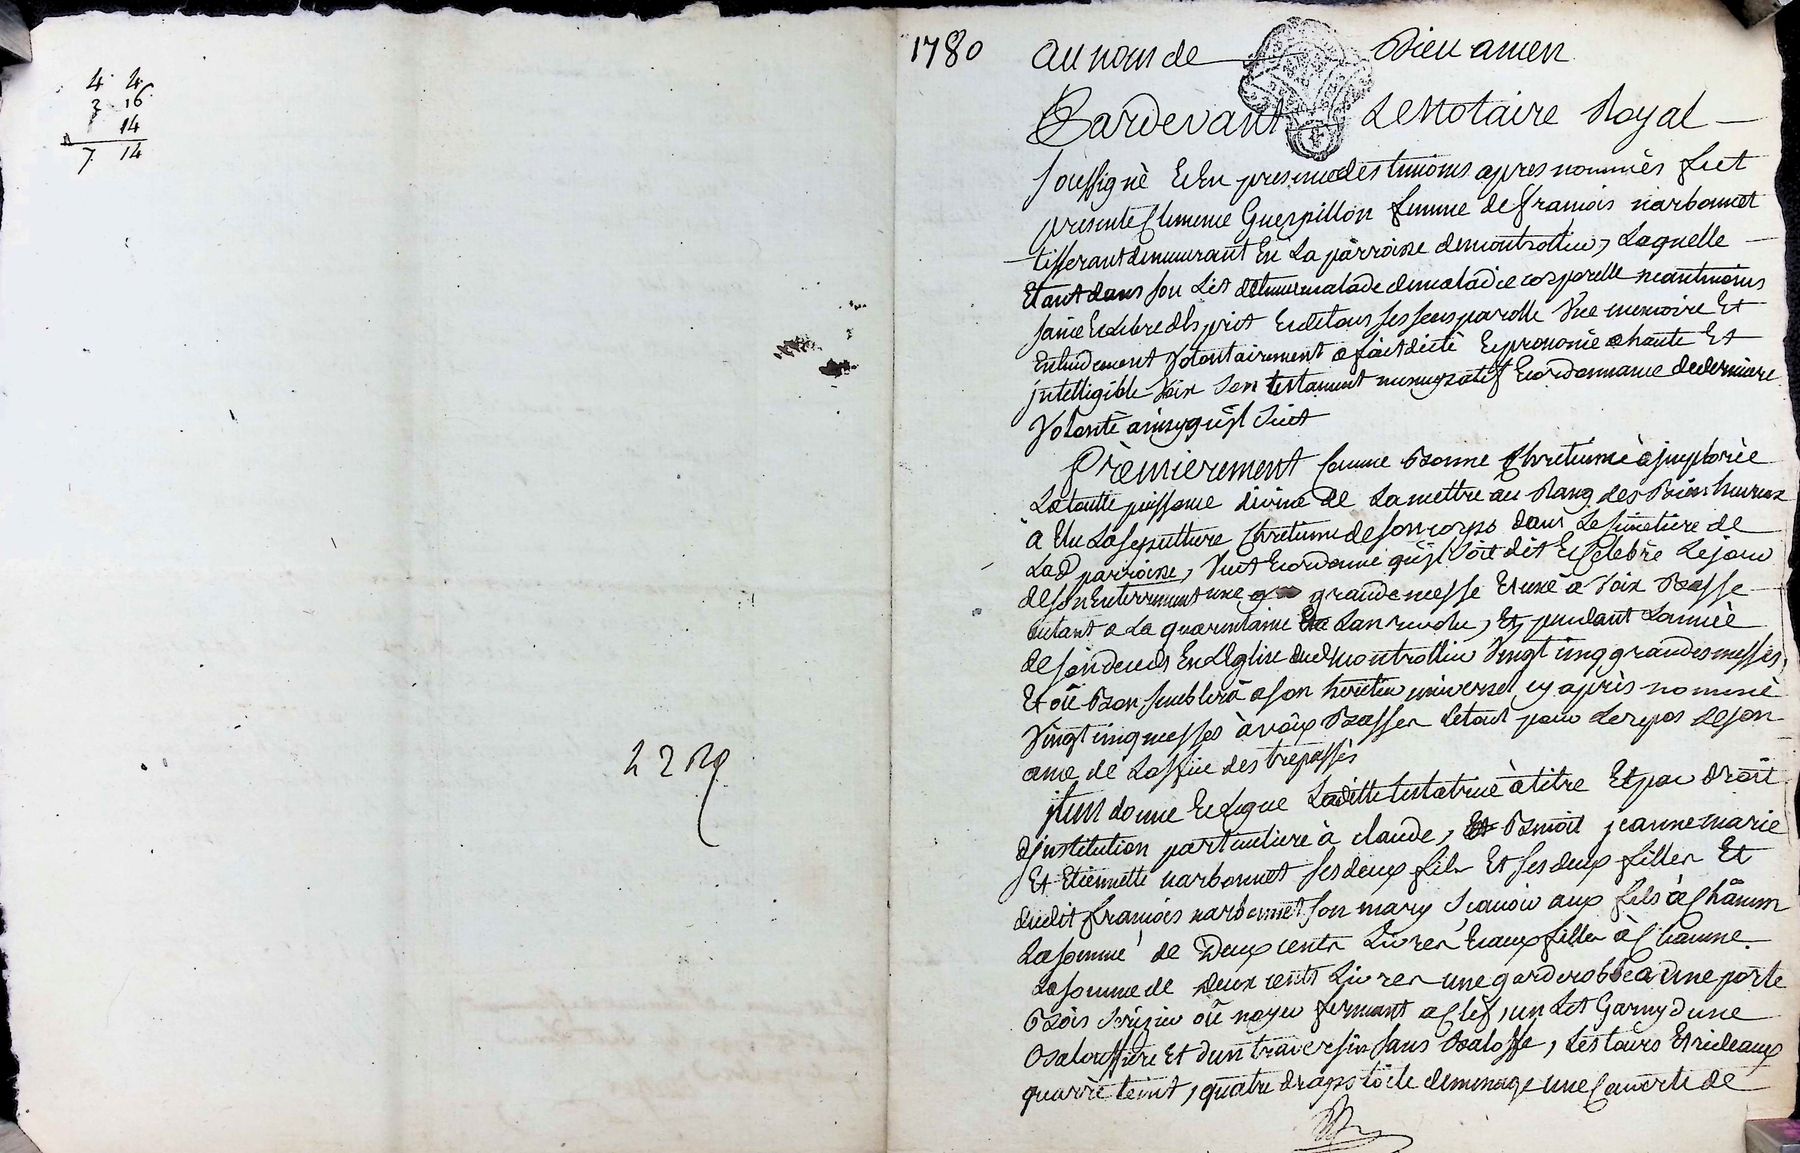 4 4
3 16
14
7 14
1780
au nom de Dieu amen
Pardevant Le Notaire Royal
soussigné et en presence des temoins apres nommés fut
presente Clemence Guerpillon femme de francois narbonnet
tisserant demeurant en La parroisse de montrottier, Laquelle
Etant dans son Lit detenue malade de maladie corporelle neantmoins
saine et Libre desprit et de tous ses sens parolle vue memoire Et
Entendement volontairement a fait dicté et prononcé a haute Et
jntelligible voix son testament nuncupatif et ordonnance de derniere
volonté ainsy qu'jl suit
Premierement comme Bonne Chretienne a jmplorée
La toutte puissance divine de La mettre au Rang des Bien heureux
à Elu La sepulture Chretienne de son corps dans Le simetiere de
Lad parroisse, veut et ordonne qu'jl soit dit et Celebré Le jour
de son Enterrement une grande messe Et une a voix Basse
autant a La quarentaine Lan revolu, Et pendant L'année
de son deuds En L'Eglise dud montrottier vingt cinq grandes messes,
Et où Bon semblera a son heritier universel cy après nommé
vingt cinq messes à voix Basses le tout pour Le repos de son
ame de Laffie des trepassés
jtem donne et Legue Laditte testatrice à titre Et par droit
d'jnstitution particuliere à claude, Benoit jeanne marie
Et Etiennette narbonnet ses deux fils Et ses deux filles Et
dudit francois narbonnet son mary scavoir aux fils à Chacun
La somme de Deux cents Livres et aux filles à Chacune
La somme de deux cents Livres une garderobbe a une porte
Bois serizier où noyer fermant a Clef, un Lit Garny d'une
Balouffiere Et d'un traversin sans Baloffe, Les tours Et rideaux
quarré teint, quatre draps toile de menage une Couverte de